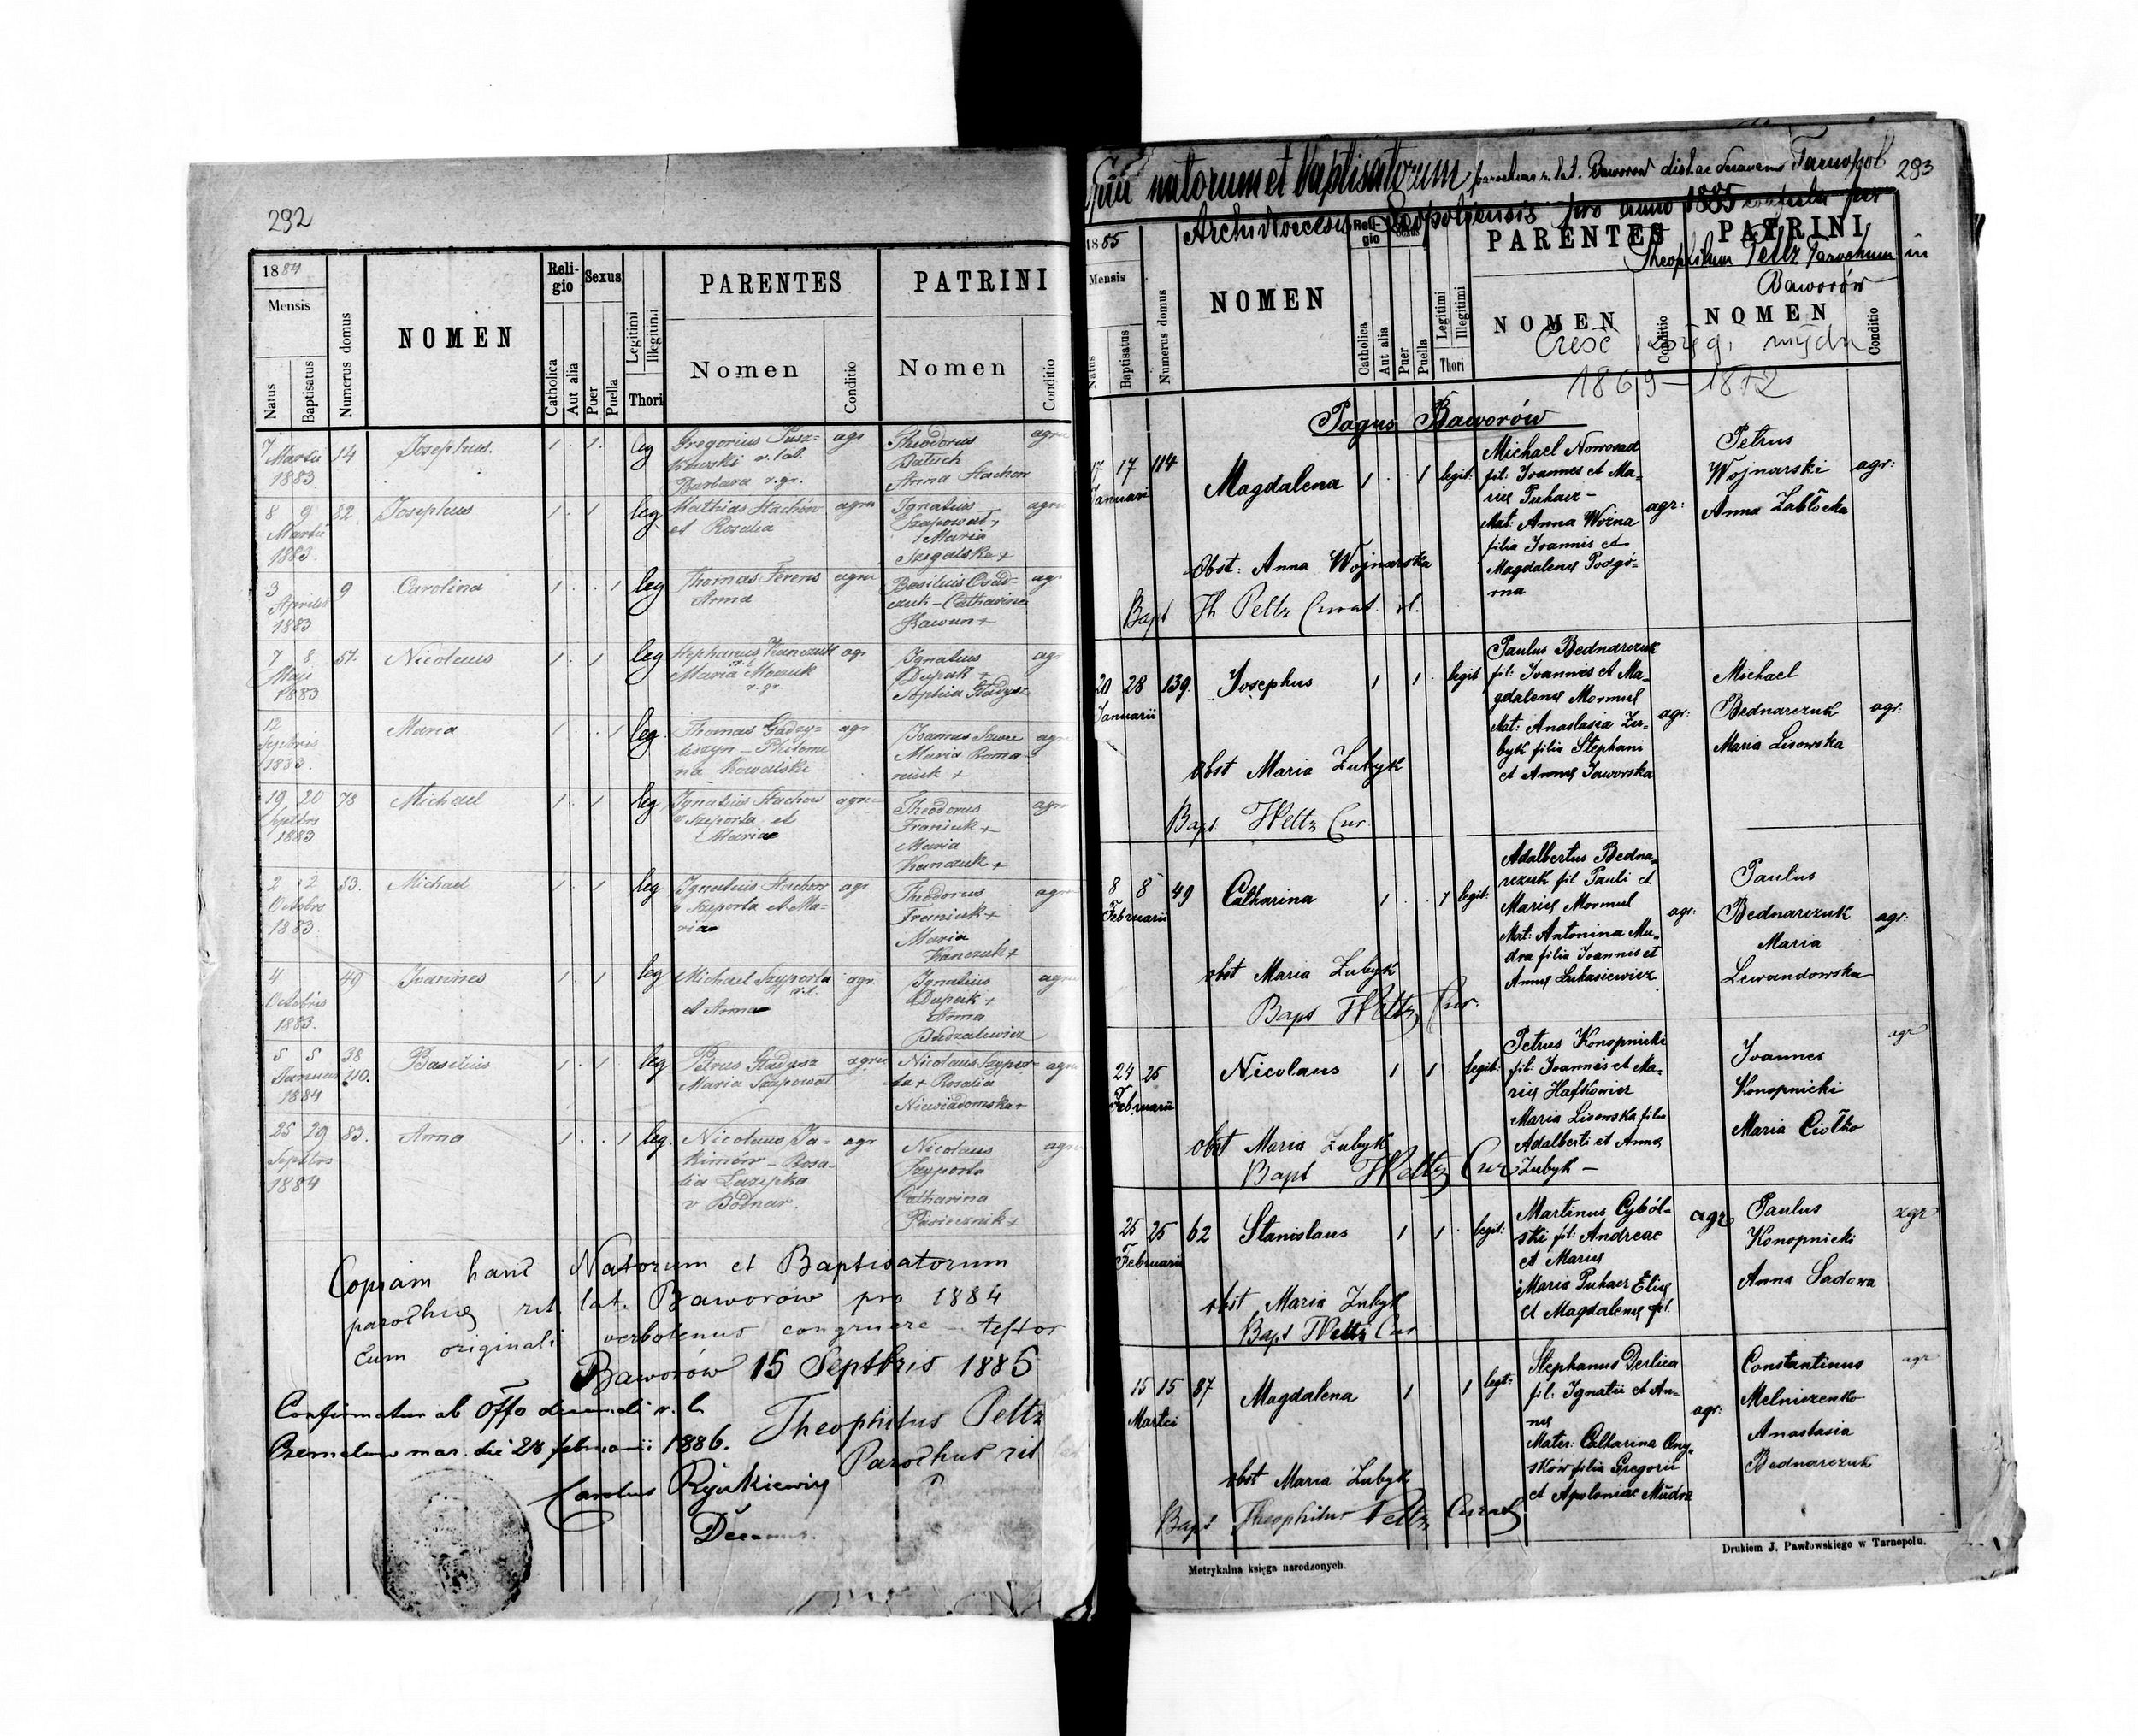 292
1884
Mensis
Natus
Baptisatus
Numerus domus
NOMEN
Reli-
gio
Catholica
Aut alia
Sexus
Puer
Puella
Legitimi
Illegitimi
Thori
PARENTES
Nomen
Conditio
PATRINI
Nomen
Conditio
7
Martii
1883
14
Josephus.
1
1
leg
Gregorius
r. lat.
Barbara r. gr.
agr
Theodorus
Anna Stachow
8 9
Martii
1883
82
Josephus
1
1
leg
Mathias Stachów
et Rosalia
Ignatius
Maria
3
Aprilis
1883
9
Carolina
1
1
leg
Thomas Ferens
Anna
Basilius
Catharina
agr
7 8
Maji
1883
57.
Nicolaus
1
1
leg
Stephanus Kanczuk
Maria
r. gr.
agr
Ignatius
Dupak +
Sophia Gladysz
agr
12
Septbris
1883.
Maria
1
1
leg.
Thomas
Kowalski
agr
Maria Roma-
niuk +
19 20
Septbrs
1883
78
Michael
1
1
leg
Ignatius Stachow
v Szyporta et
Maria
Theodorus
Franiuk +
Maria
Kanczuk +
2 2
Octobrs
1883.
53.
Michael
1
1
leg
Ignatius Stachow
v Szyporta et Ma-
ria
agr
Theodorus
Franiuk +
Maria
Kanczuk +
4
Octobris
1883.
49
Joannes
1
1
leg
Michael Szyporta
r. l.
et Anna
agr
Ignatius
Dupak +
Anna
5 5
Januar
1884
38
Basilius
1
1
leg
Petrus Gladysz
Maria Szapowal
Nicolaus Szypor-
ta + Rosalia
Niewiadomska +
25 29
Septbrs
1884
83.
Anna
1
1
leg.
Nicolaus Ja-
kimów - Rosa-
lia Lazepka
v Bodnar.
agr
Nicolaus
Szyporta
Catharina
Pasiecznik +
Copiam hanc Natorum et Baptisatorum
parochię rit. lat. Baworów pro 1884
cum originali verbotenus congruere testor
Baworów 15 Septbris 1885
Theophilus Peltz
Parochus rit
Confirmatur ab Offo decanali r. l.
die 28 februarii 1886.
Carolus
Decanus.
293
natorum et baptisatorum parochiae r. lat. Baworów dist. ac decanatus Tarnopol
Archidioecesis Leopoliensis pro anno 1885 per
Theophilum Peltz Parochum in
Baworów
1885
Mensis
Natus
Baptisatus
Numerus domus
NOMEN
Reli-
gio
Catholica
Aut alia
Sexus
Puer
Puella
Legitimi
Illegitimi
Thori
PARENTES
NOMEN
Conditio
PATRINI
NOMEN
Conditio
1869-1872
Pagus Baworów
17 17
Januarii
114
Magdalena
1
1
legit:
Michael Noworad
fil: Joannes et Ma-
rię Puhacz -
Mat: Anna Wożna
filia Joannis et
Magdalenę Podgór-
na
agr:
Petrus
Wojnarski
Anna Zabłocka
agr:
Obst: Anna Wojnarska
Bapt Th Peltz Curat.
20 28
Januarii
139.
Josephus
1
1
legit
Paulus Bednarczuk
fil: Joannis et Ma-
gdalenę Mormul
Mat: Anastasia Zu-
byk filia Stephani
et Annę Jaworska
agr:
Michael
Bednarczuk
Maria Lisowska
agr:
obst Maria Zubyk
Bapt. Th Peltz Cur.
8 8
Februarii
49
Catharina
1
1
legit:
Adalbertus Bedna-
rczuk fil Pauli et
Marię Mormul
Mat: Antonina Mu-
dra filia Joannis et
Annę Lukasiewicz
agr:
Paulus
Bednarczuk
Maria
Lewandowska
agr:
obst Maria Zubyk
Bapt Th Peltz Cur.
24 25
Februarii
Nicolaus
1
1
legit:
Petrus Konopnicki
fil: Joannis et Ma-
rię Hafkowicz
Maria Lisowska filia
Adalberti et Annę
Zubyk -
Joannes
Konopnicki
Maria Ciołko
agr
obst Maria Zubyk
Bapt Th Peltz Cur
25 25
Februarii
62
Stanislaus
1
1
legit:
Martinus Cyból-
ski fil: Andreae
et Marię
Maria Puhacz Elię
et Magdalenę fil.
agr
Paulus
Konopnicki
Anna Sadowa
agr
obst Maria Zubyk
Bapt Th Peltz Cur
15 15
Martii
87
Magdalena
1
1
legt:
Stephanus Derlica
fil: Ignatii et An-
nę
Mater: Catharina Ony-
sków filia Gregorii
et Apoloniae Mudra
agr:
Constantinus
Melniczenko
Anastasia
Bednarczuk
agr
obst Maria Zubyk
Bapt Theophilus Peltz Curat
Metrykalna księga narodzonych.
Drukiem J. Pawłowskiego w Tarnopolu.